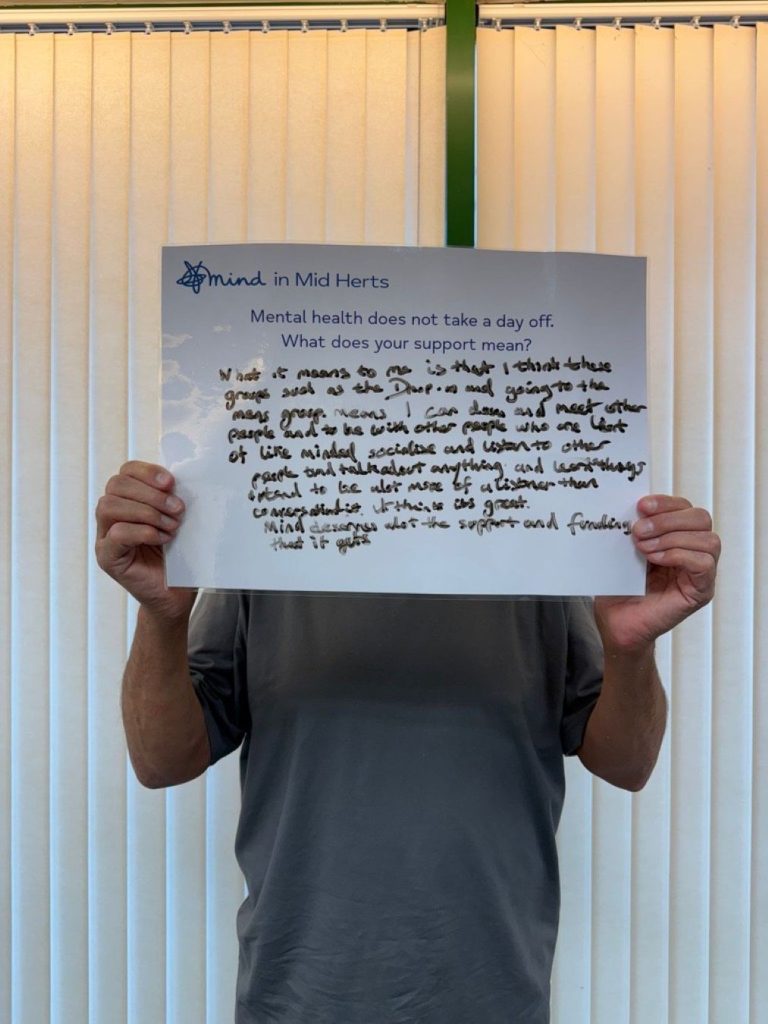 mind in Mid Herts
Mental health does not take a day off.
What does your support mean?
What it means to me is that I think these
groups such as the Drop-in and going to the
mens group means I can down and meet other
people and to be with other people who are
of like minded socialise and listen to other
people and talk about anything and learn things
I tend to be alot more of a listener than
conversationlist. It think its great.
Mind deserves alot the support and funding
that it gets